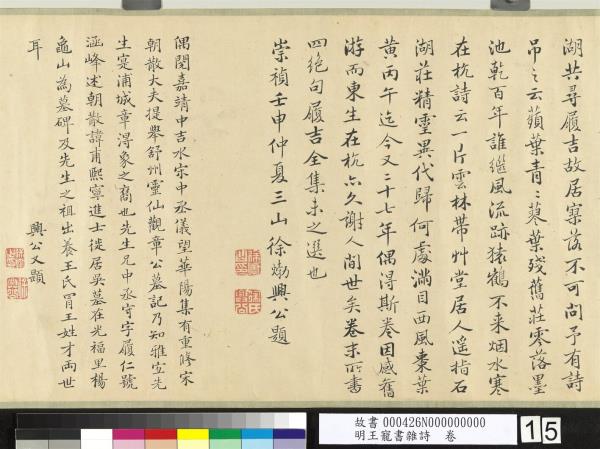 湖共尋履吉故居寥落不可問予有詩
吊之云蘋葉青〻蓼葉殘舊莊零落墨
池乾百年誰繼風流跡猿鶴不来烟水寒
在杭詩云一片雲林帶艸堂居人遥指石
湖莊精靈異代歸何處滿目西風棗葉
黄丙午迄今又二十七年偶得斯卷因感舊
游而東生在杭亦久謝人間世矣卷末所書
四絶句履吉全集未之選也
崇禎壬申仲夏三山徐𤊹興公題
偶閲嘉靖中吉水宋中丞儀望華陽集有重脩宋
朝散大夫提舉舒州靈仙觀章公墓記乃知雅宜先
生寔浦城章得象之裔也先生兄中丞寄字履仁號
涵峰述朝散諱甫熙寧進士徙居吴墓在光福里楊
龜山為墓碑及先生之祖出養王氏冒王姓才兩世
耳
興公又題
故書 000426N000000000
明王寵書雜詩 卷
15